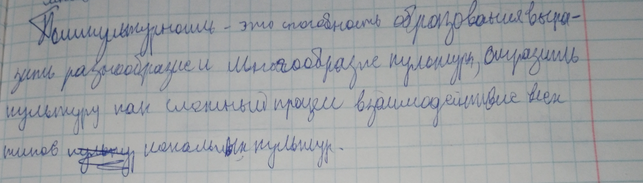 Поликультурность - это способность образования выра-
зить разнообразие и многообразие культуры, отразить
культуру как сложный процесс взаимодействие всех
типов локальных культур.